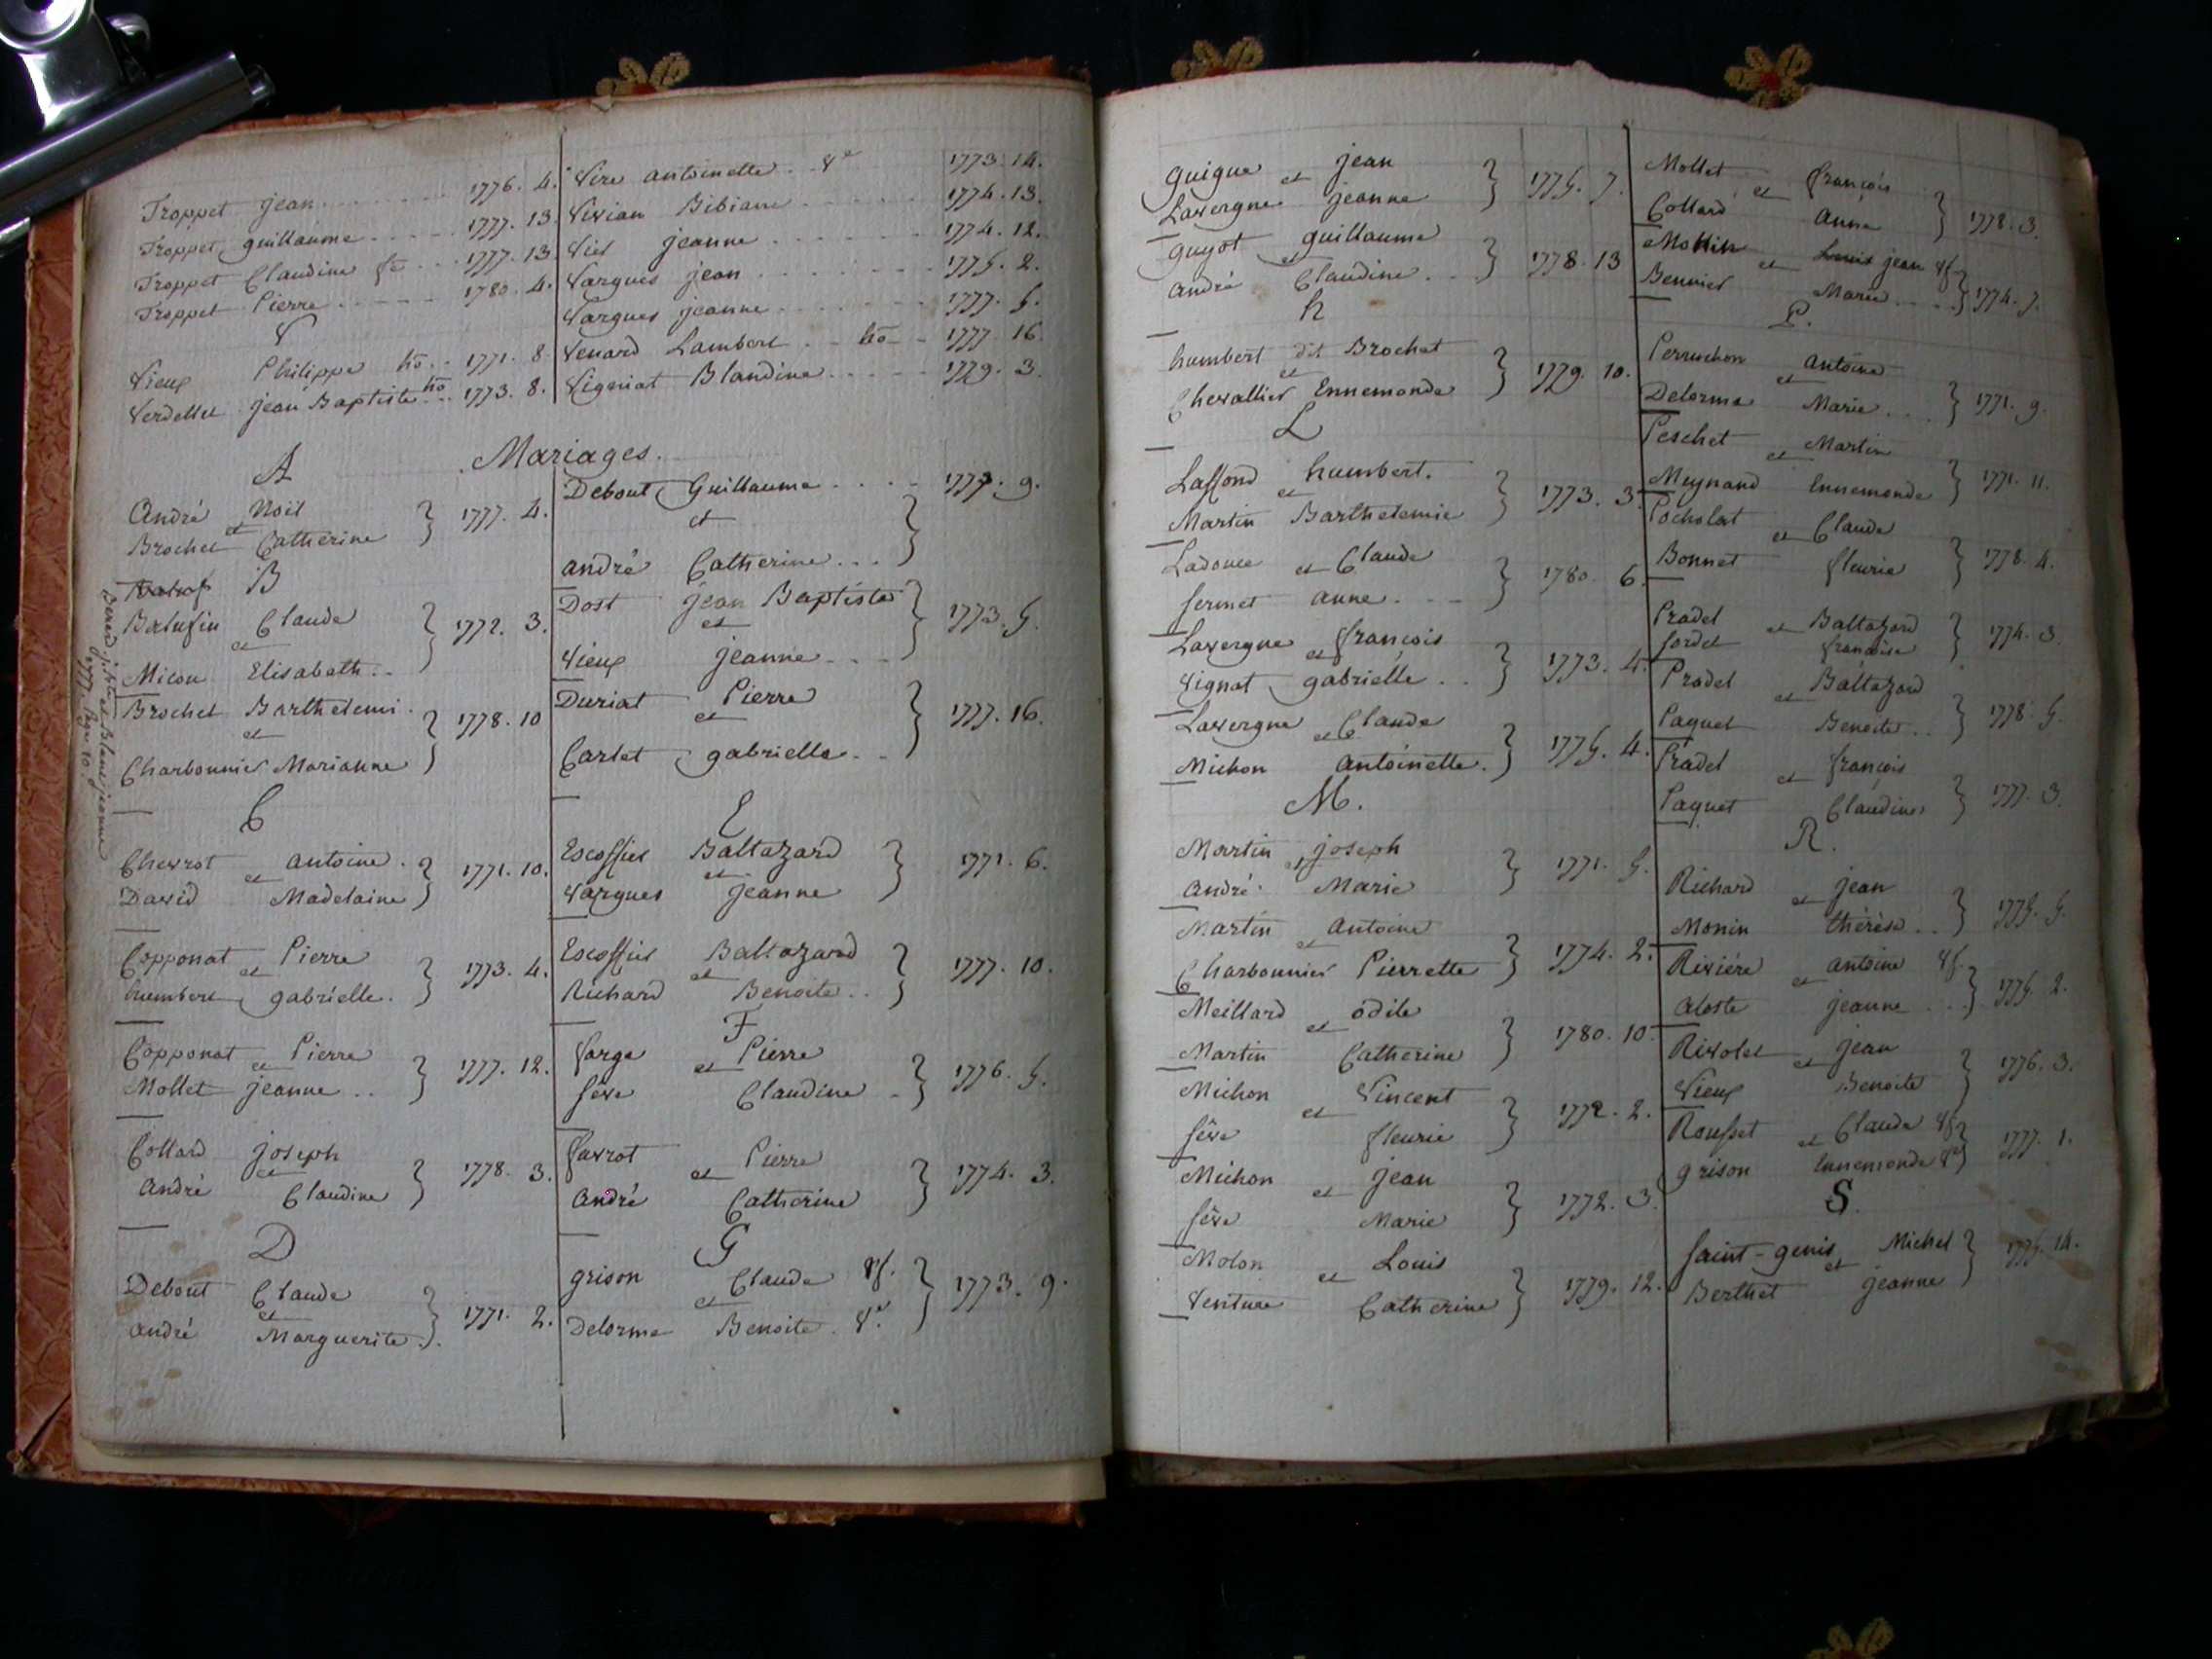 Troppet jean 1776. 4.
Troppet guillaume 1777. 13
Troppet Claudine fe 1777. 13.
Troppet Pierre 1780. 4.
V
Vieux Philippe ho 1771. 8.
Verdellet jean Baptiste ho 1773. 8.
Vire antoinette 1773. 14.
Vivian Bibiane 1774. 13.
Viel jeanne 1774. 12.
Vargues jean 1775. 2.
Vargues jeanne 1777. 5.
Venard Lambert ho 1777 16.
Vigniat Blandine 1779. 3.
Mariages.
A
André Noël
et
Brochet Catherine } 1777. 4.
B
Balufin Claude
et
Micou Elisabeth } 1772. 3.
Brochet Barthelemi
et
Charbonnier Marianne } 1778. 10
Berard et Blanc jeanne
1777. Page 10.
C
Chevrot antoine
et
David Madelaine } 1771. 10.
Copponat Pierre
et
humbert gabrielle. } 1773. 4.
Copponat Pierre
et
Mollet jeanne } 1777. 12.
Collard joseph
et
André Claudine } 1778. 3.
D
Debout Claude
et
André Marguerite } 1771. 2.
Debout Guillaume 1777. 9.
et
andré Catherine }
Dost jean Baptiste
et
Vieux jeanne } 1773. 5.
Duriat Pierre
et
Carlet gabrielle } 1777. 16.
E
Escoffier Baltazard
et
Vargues jeanne } 1771. 6.
Escoffier Baltazard
et
Richard Benoite } 1777. 10.
F
farge Pierre
et
sève Claudine } 1776. 5.
favrot Pierre
et
André Catherine } 1774. 3.
G
grison Claude Vf.
et
Delorme Benoite Ve } 1773. 9.
guigue jean
et
Lavergne jeanne } 1775. 7.
guyot guillaume
et
André Claudine } 1778. 13
h
humbert dit Brochet
et
Chevallier Ennemonde } 1779. 10.
L
Laffond humbert.
et
Martin Barthelemie } 1773. 3.
Ladouce Claude
et
fermet anne } 1780. 6.
Lavergne françois
et
Vignat gabrielle } 1773. 4.
Lavergne Claude
et
Michon antoinette. } 1775. 4.
M.
Martin joseph
et
André Marie } 1771. 5.
Martin Antoine
et
Charbonnier Pierrette } 1774. 2.
Meillard odile
et
Martin Catherine } 1780. 10
Michon Vincent
et
sève fleurie } 1772. 2.
Michon jean
et
sève Marie } 1772. 3.
Molon Louis
et
Venture Catherine } 1779. 12.
Mollet françois
et
Collard Anne } 1778. 3.
Mollin Louis jean Vf.
et
Bennier Marie } 1774. 7.
P.
Perruchon antoine
et
Delorme Marie } 1771. 9.
Peschet Martin
et
Meynand Ennemonde } 1771. 11.
Pocholat Claude
et
Bonnet fleurie } 1778. 4.
Pradel Baltazard
et
fordet françoise } 1774. 3.
Pradel Baltazard
et
Paquet Benoite } 1778. 5.
Pradel françois
et
Paquet Claudine } 1777. 3.
R.
Richard jean
et
Monin thérèse } 1775. 5.
Rivière antoine Vf.
et
aloste jeanne } 1775. 2.
Rivolet jean
et
Vieux Benoite } 1776. 3.
Rousset Claude Vf.
et
grison Ennemonde Ve } 1777. 1.
S.
Saint-genis Michel
et
Berthet jeanne } 1775. 14.